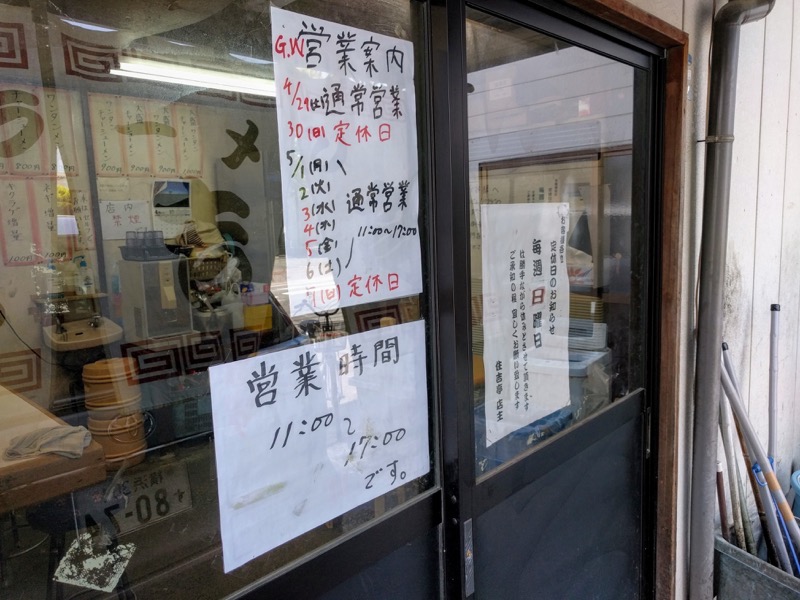 G.W営業案内
4/29(土)通常営業
30(日)定休日
5/1(月)
2(火)
3(水)
4(木)
5(金)
6(土)
通常営業
11:00~17:00
7(日)定休日
営業時間
11:00~
17:00
です。
お客様各位
定休日のお知らせ
毎週日曜日
仕勝手ながら休みとさせて頂きます
ご承知の程宜しくお願い致します
住吉亭店主
ラーメン
キクラゲ増量
店内
禁煙
80-7